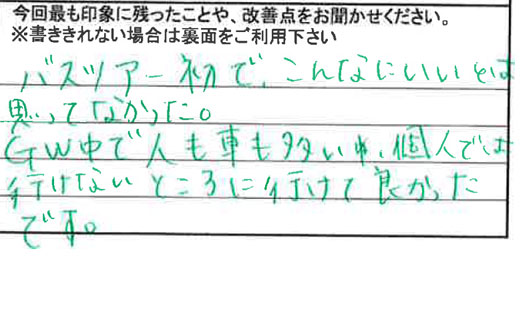 今回最も印象に残ったことや、改善点をお聞かせください。
※書ききれない場合は裏面をご利用下さい
バスツアー初で、こんなにいいとは
思ってなかった。
GW中で人も車も多い中、個人では
行けないところに行けて良かった
です。